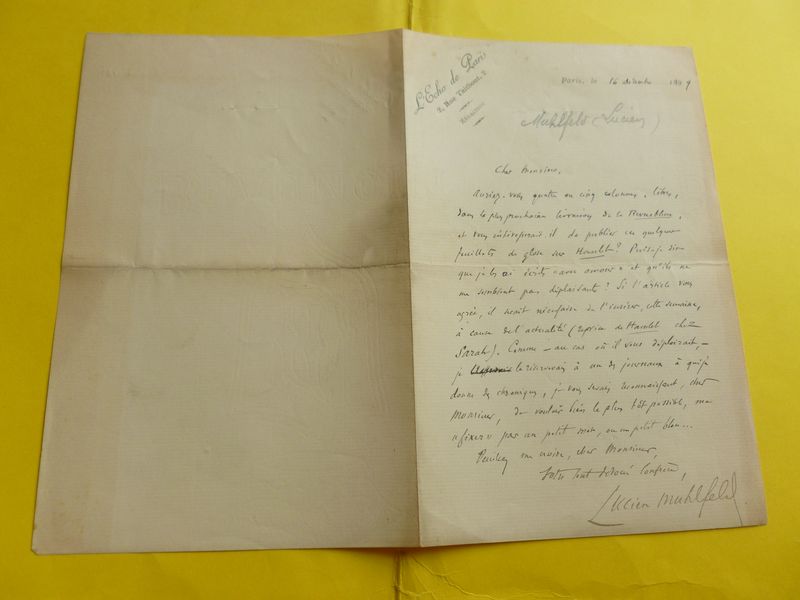 L'Echo de Paris
2, Rue Taitbout, 2
Rédaction
Paris, le 16 décembre 1899
Muhlfeld (Lucien)
Cher Monsieur,
Auriez-vous quatre ou cinq colonnes, libres,
dans la plus prochaine livraison de la
et vous intéresserait-il de publier ces quelques
feuillets de glose sur Hamlet? Puis-je dire
que je les ai écrits « avec amour » et qu'ils ne
me semblent pas déplaisants? Si l'article vous
agrée, il serait nécessaire de l'insérer, cette semaine,
à cause de l'actualité (reprise de Hamlet chez
Sarah). Comme – au cas où il vous déplairait, –
je le réserverais à un des journaux à qui je
donne des chroniques, je vous serais reconnaissant, cher
Monsieur, de vouloir bien le plus tôt possible, me
« fixer » par un petit mot, ou un petit bleu...
Veuillez me croire, cher Monsieur,
Votre tout dévoué confrère,
Lucien Muhlfeld